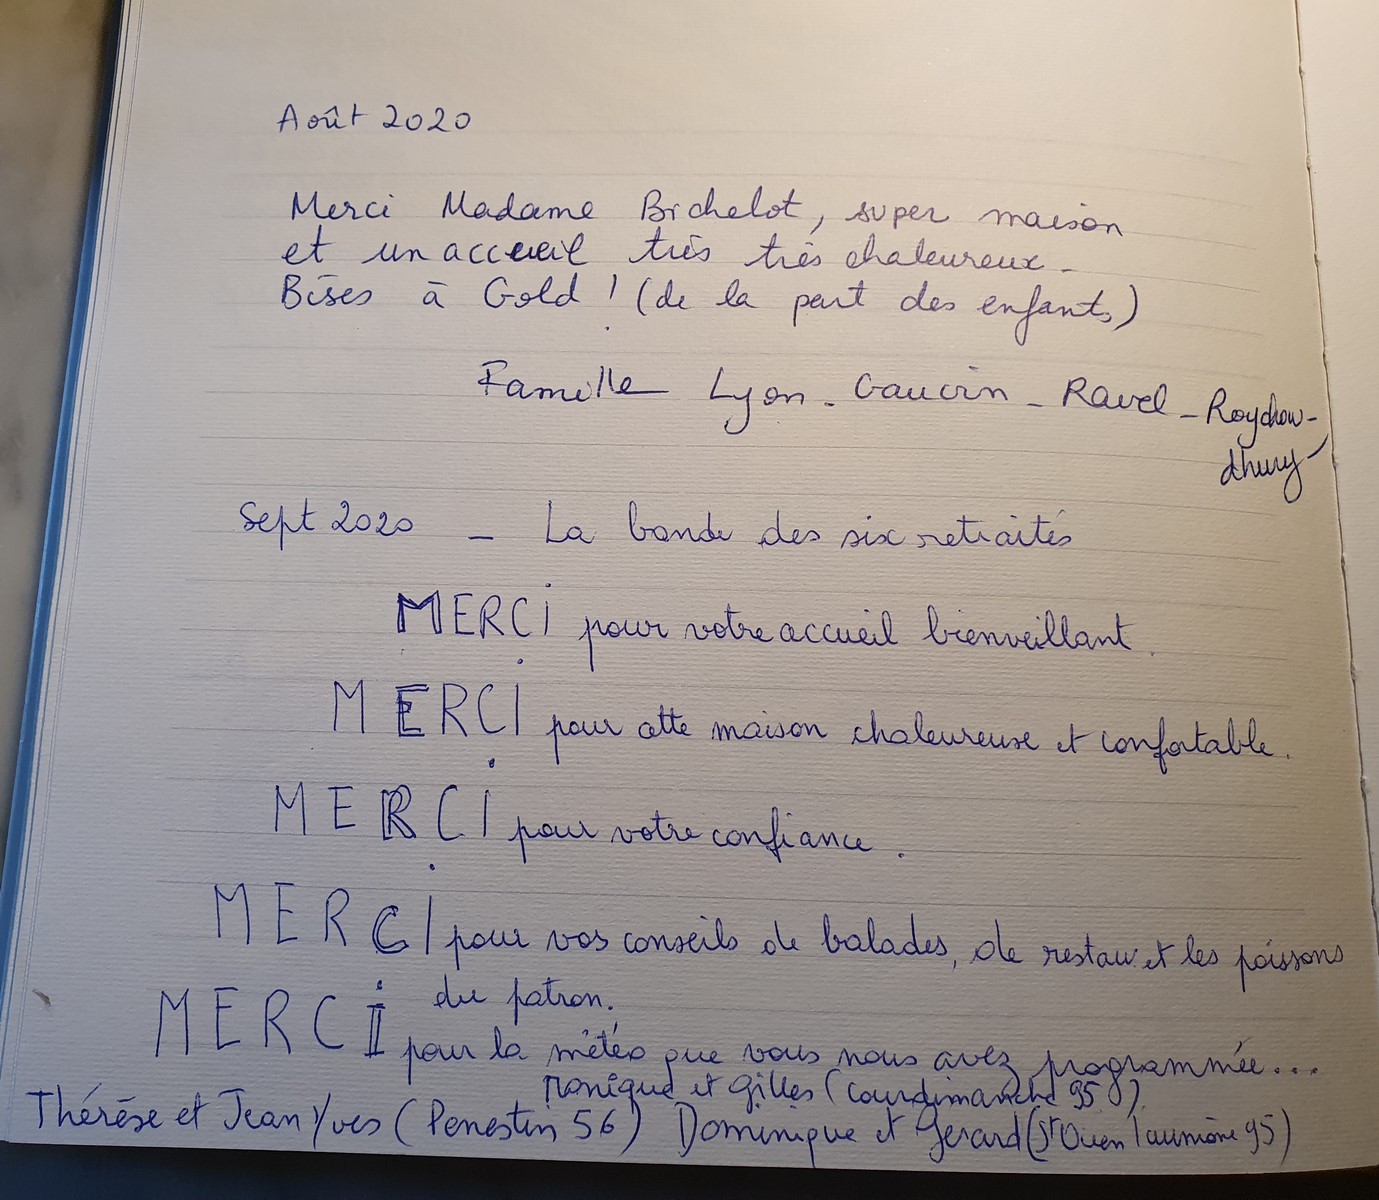 Août 2020
Merci Madame Bichelot, super maison
et un accueil très très chaleureux -
Bises à Gold ! (de la part des enfants)
Famille Lyon - Gauvin - Ravel - Roychow-
dhury
Sept 2020 - La bande des six retraités
MERCI pour votre accueil bienveillant.
MERCI pour cette maison chaleureuse et confortable.
MERCI pour votre confiance.
MERCI pour vos conseils de balades, de restau et les poissons
du patron.
MERCI pour la météo que vous nous avez programmée...
Monique et Gilles (Courdimanche 95)
Thérèse et Jean Yves (Penestin 56) Dominique et Gerard (St Ouen l'aumône 95)